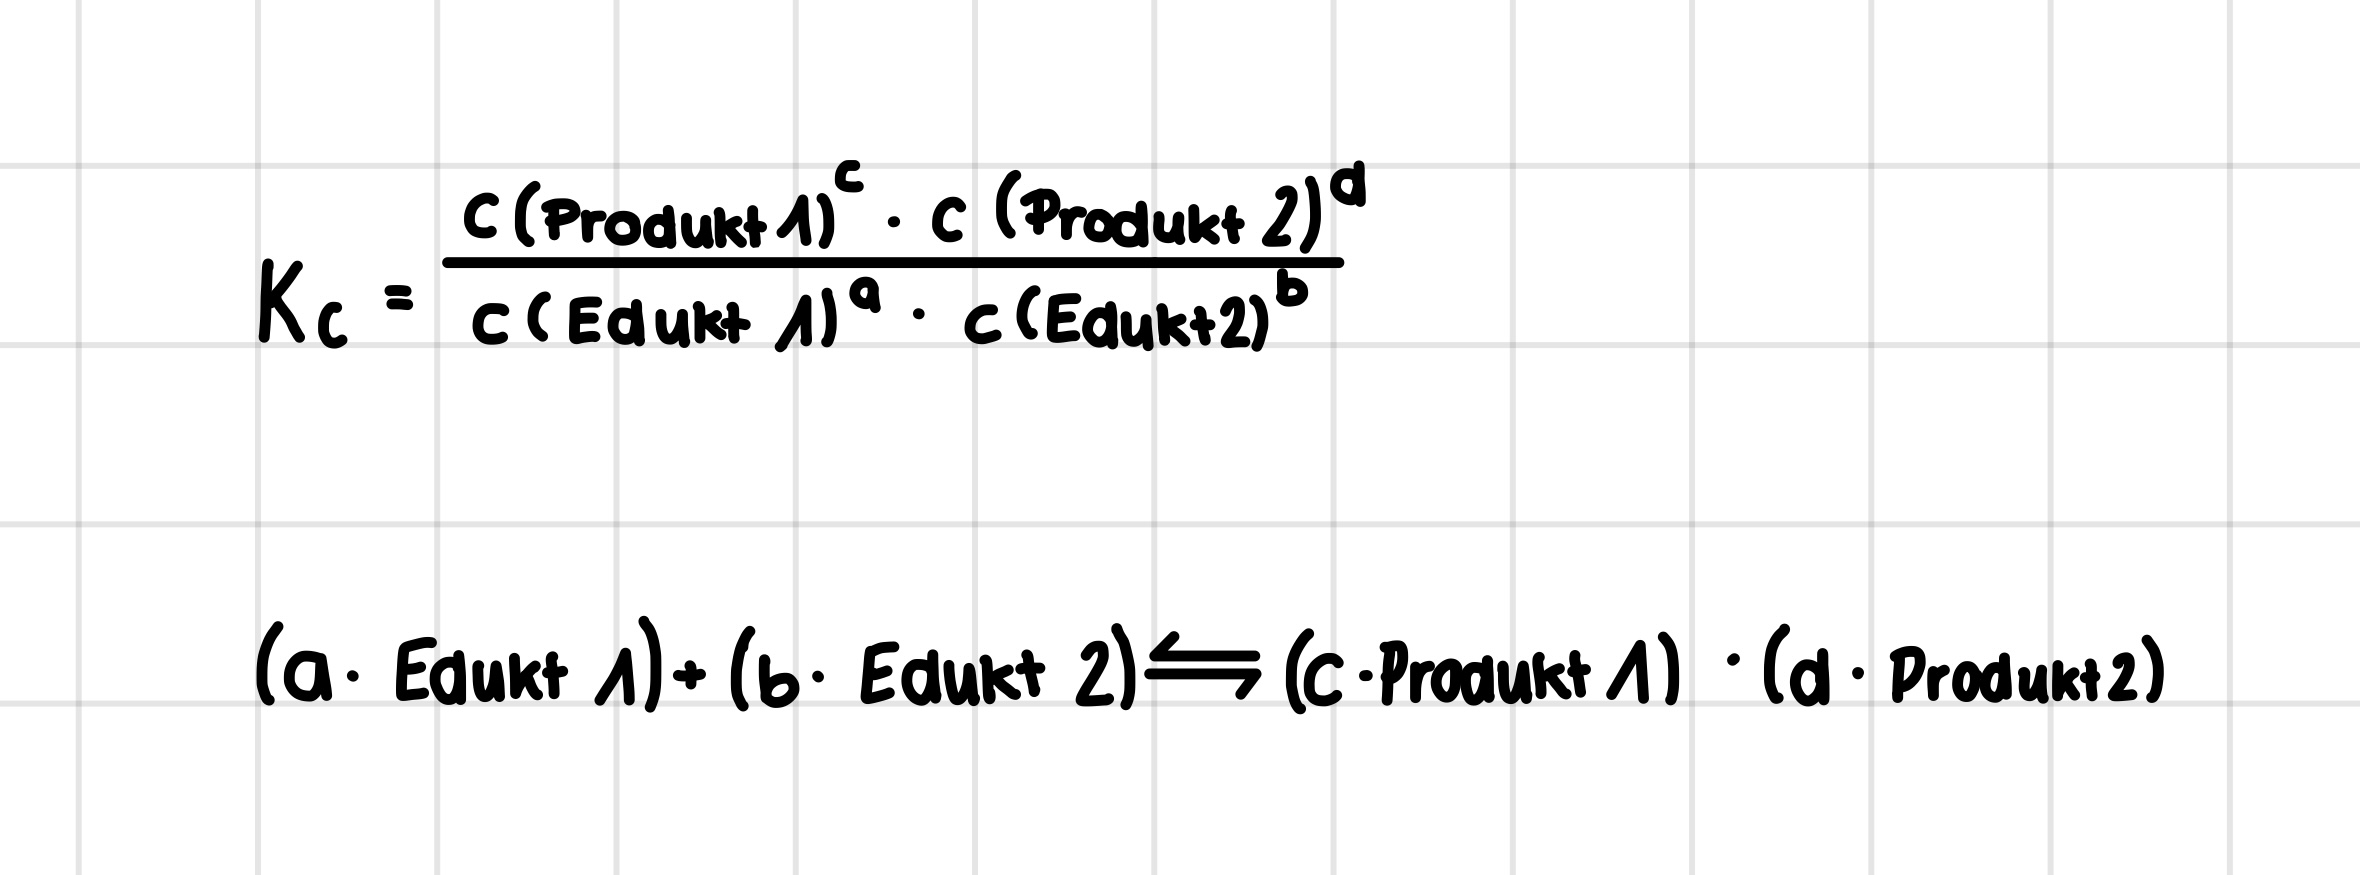 Kc = C(Produkt 1)^c · c(Produkt 2)^d / c(Edukt 1)^a · c(Edukt 2)^b
(a · Edukt 1) + (b · Edukt 2) ⇋ (c · Produkt 1) · (d · Produkt 2)